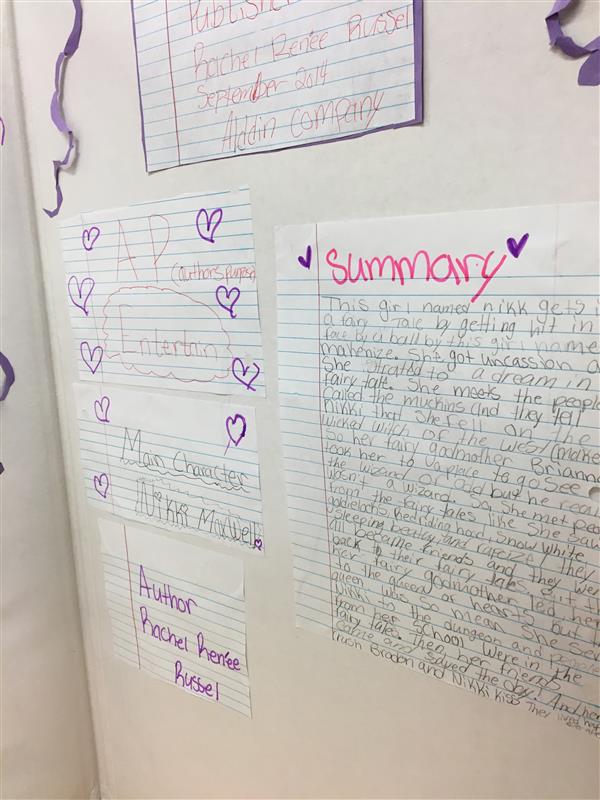 Publishe
Rachel Renée Russel
September 2014
Alddin company
AP
(authors purpose)
Entertain
Main Character
Nikki Maxwell
Author
Rachel Renée
Russel
Summary
This girl named nikk gets i
a fairy tale by getting hit in
face by a ball by this girl name
makenize. She got uncassion a
She strated to a dream in
fairy tale. She meets the people
called the muckins and they tell
nikki that she fell on the
wicked witch of the west (make
So her fairy godmother Brianna
took her to a place to go see
the wizard or odd but he real
wasn't a wizard. So she met peo
from the fairy tales like she saw
goldielocks, Red riding hood, Snow white
sleeping beatuy and rapelzel they
all became friends and they we
back to their fairy tales
her fairy godmother led her
to the queen of hearts but
queen was so mean she se
Nikki to the dungeon and people
from her school were in the
fairy tales. Then her friends
came and saved the day! And her
crush Bradon and Nikki kiss They lived